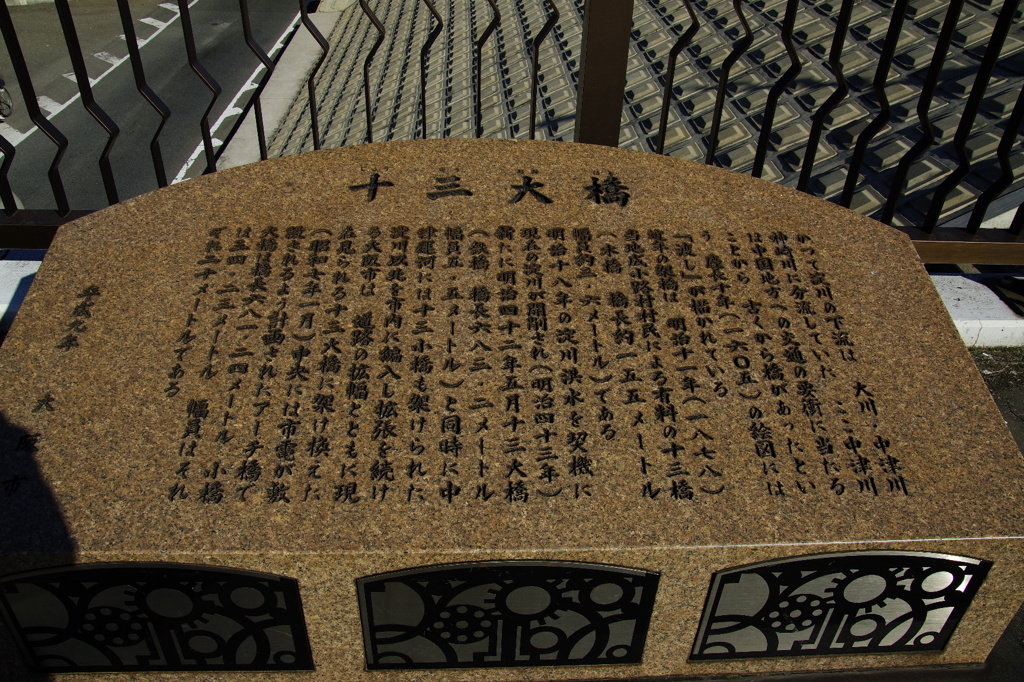 十三大橋
かつて淀川の下流は 大川・中津川
神崎川に分流していた ここ中津川
は中国地方への交通の要衝に当たる
ことから 古くから橋があったとい
う 慶長十年(一六〇五)の絵図には
「渡し」が描かれている
最初の架橋は 明治十一年(一八七八)
当地成小路村村民による有料の十三橋
(木橋 橋長約一五五メートル
幅員約三・六メートル)である
明治十八年の淀川洪水を契機に
現在の淀川が開削され(明治四十三年)
新たに明治四十二年五月十三大橋
(鉄橋 橋長六八二・二メートル
幅員五・五メートル)と同時に中
津運河には十三小橋も架けられた
淀川以北を市内に編入し拡張を続け
る大阪市は 道路の拡幅とともに現
在見られる十三大橋に架け換えた
(昭和七年一月)中央には市電が敷
設されるよう計画されたアーチ橋で
大橋は橋長六八一・二四メートル 小橋
は五四・二三メートル 幅員はそれ
ぞれ二十メートルである
平成九年 大阪市